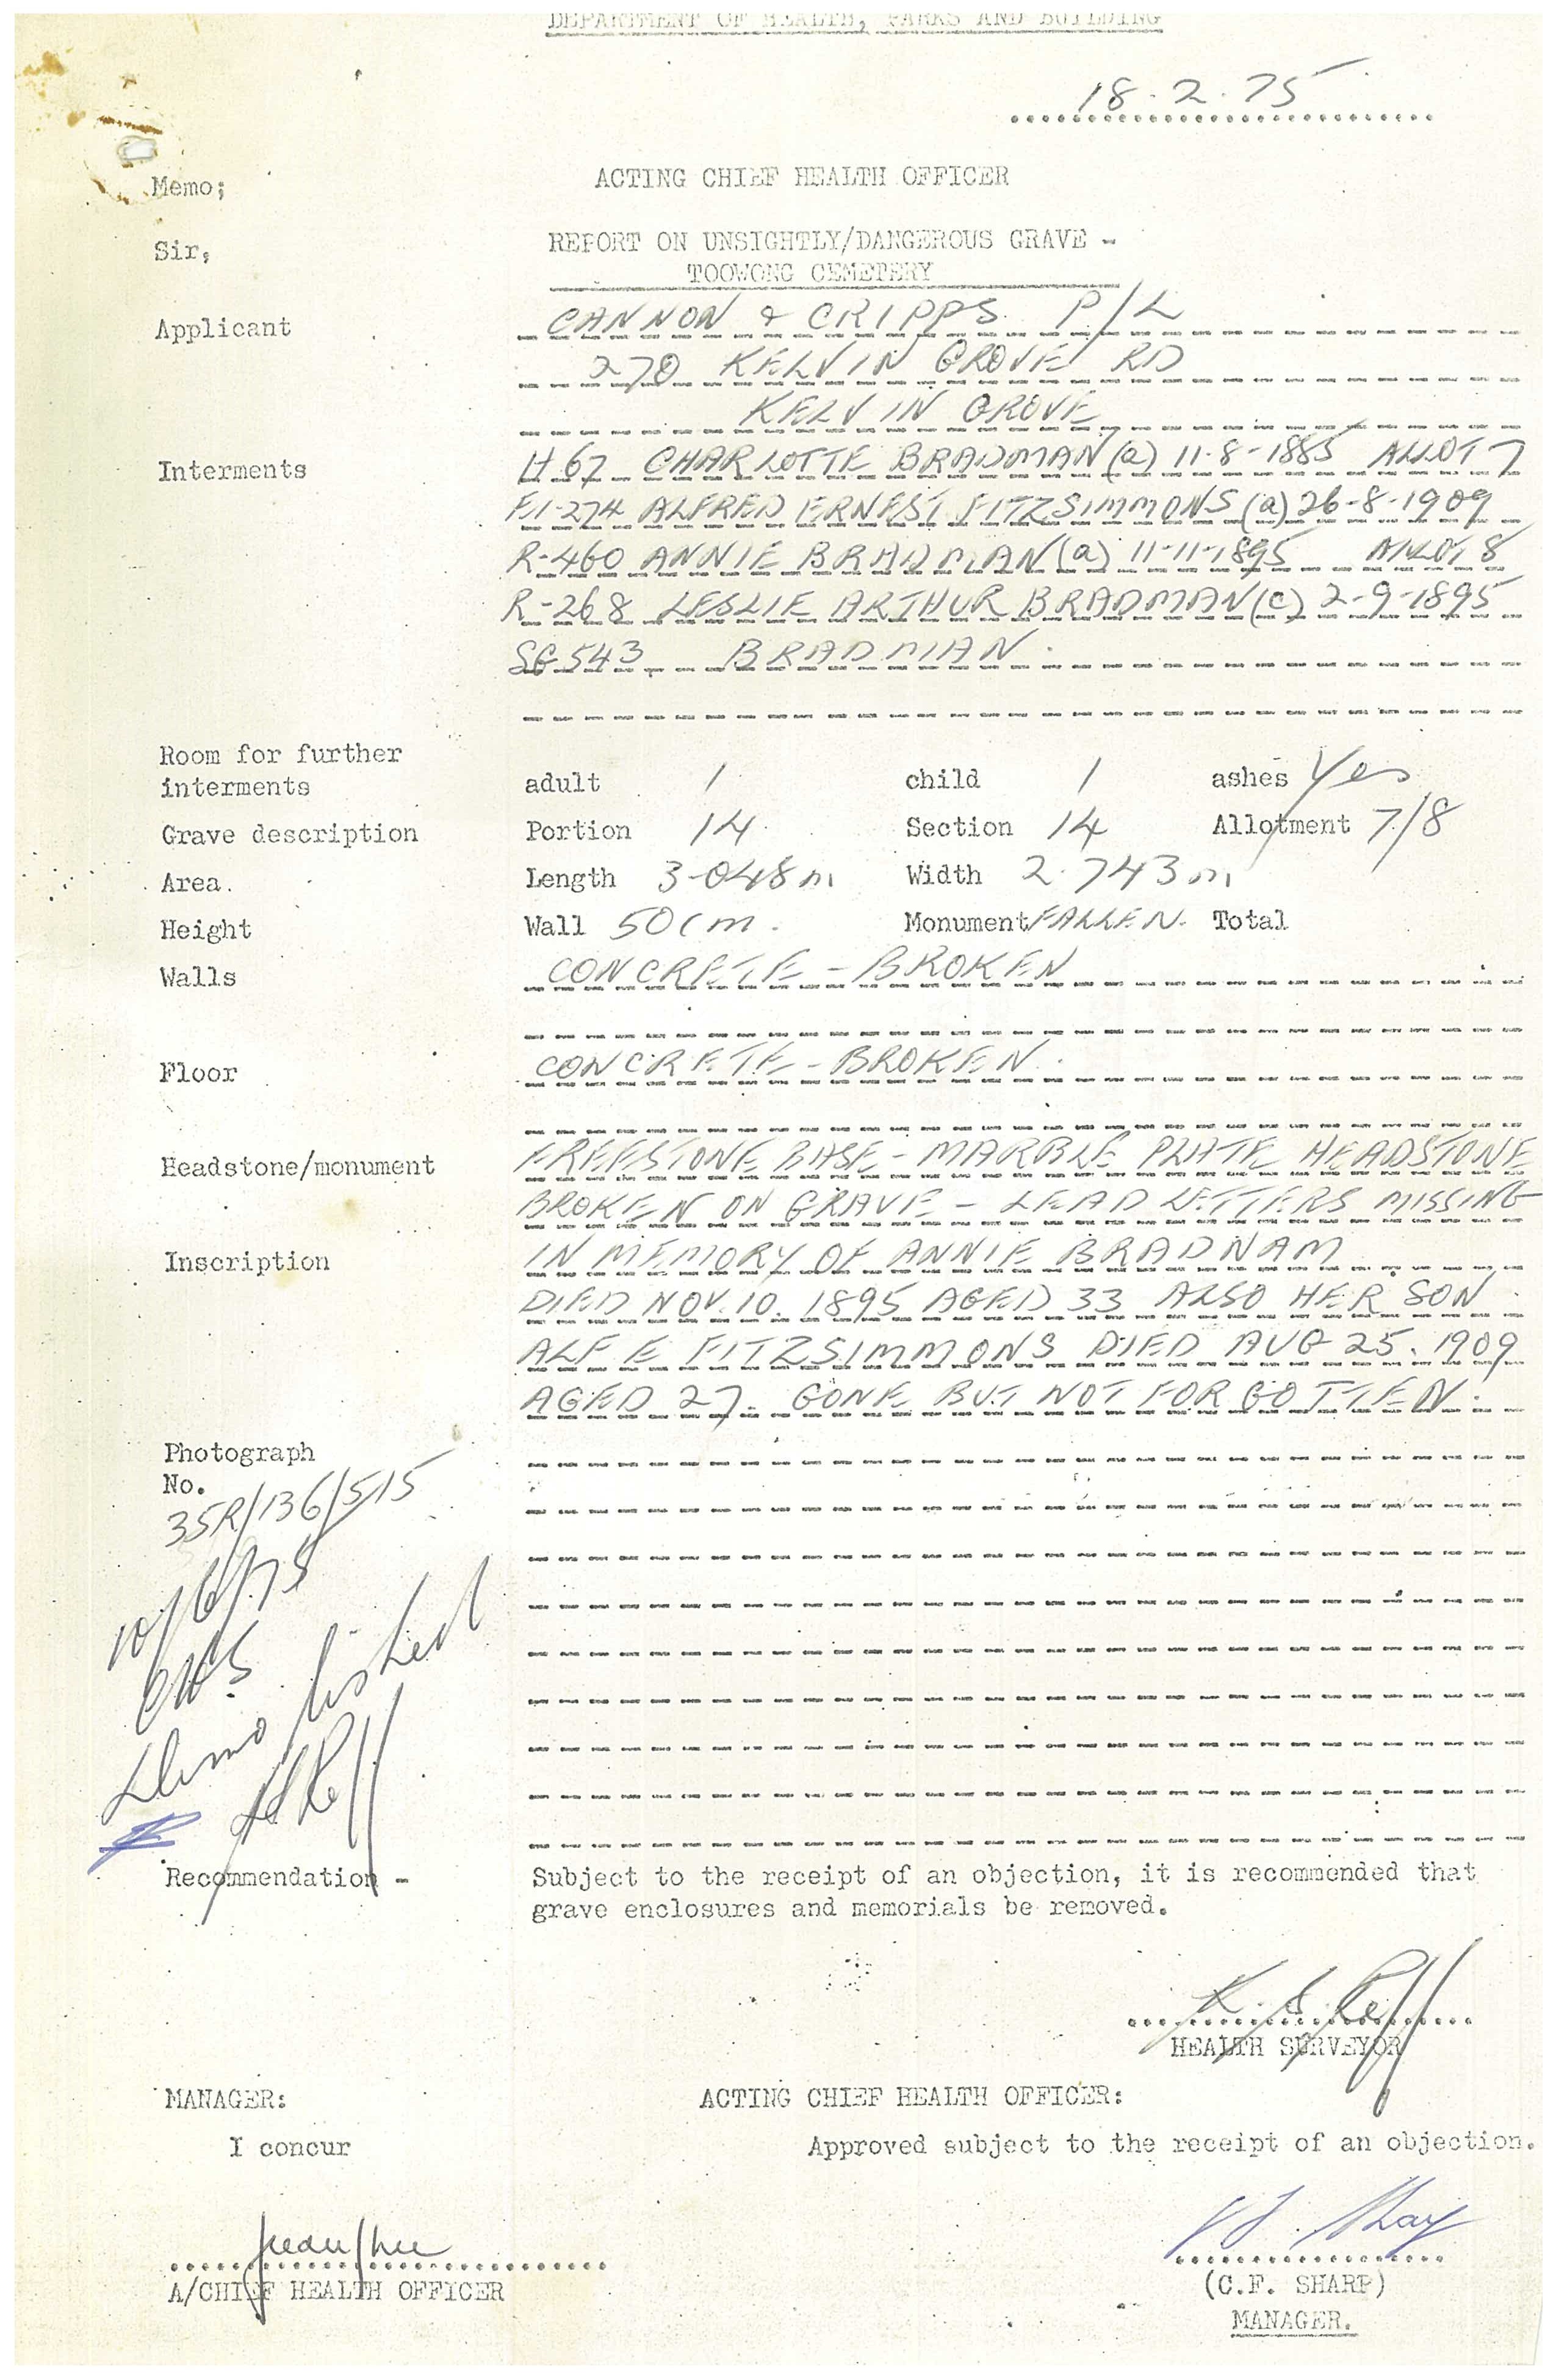 DEPARTMENT OF HEALTH, PARKS AND BUILDING
18.2.75
Memo; ACTING CHIEF HEALTH OFFICER
Sir, REPORT ON UNSIGHTLY/DANGEROUS GRAVE -
TOOWONG CEMETERY
Applicant CANNON & CRIPPS P/L
270 KELVIN GROVE RD
KELVIN GROVE
Interments H.67 CHARLOTTE BRADMAN (a) 11-8-1885 ALLOT 7
F1-274 ALFRED ERNEST FITZSIMMONS (a) 26-8-1909
R-460 ANNIE BRADMAN (a) 11-11-1895 ALLOT 8
R-268 LESLIE ARTHUR BRADMAN (c) 2-9-1895
SG 543 BRADMAN.
Room for further
interments adult 1 child 1 ashes Yes
Grave description Portion 14. Section 14 Allotment 7/8
Area. Length 3-048m Width 2.743m
Height Wall 50cm. Monument FALLEN. Total
Walls CONCRETE - BROKEN
Floor CONCRETE - BROKEN.
Headstone/monument FREESTONE BASE - MARBLE PLATE HEADSTONE
BROKEN ON GRAVE - LEAD LETTERS MISSING
Inscription IN MEMORY OF ANNIE BRADNAM
DIED NOV. 10. 1895 AGED 33 ALSO HER SON
ALF E FITZSIMMONS DIED AUG 25. 1909
AGED 27. GONE BUT NOT FORGOTTEN.
Photograph
No.
35R/136/5/15
10/6/75
Recommendation - Subject to the receipt of an objection, it is recommended that
grave enclosures and memorials be removed.
HEALTH SURVEYOR
MANAGER: ACTING CHIEF HEALTH OFFICER:
I concur Approved subject to the receipt of an objection.
A/CHIEF HEALTH OFFICER (C.F. SHARP)
MANAGER.